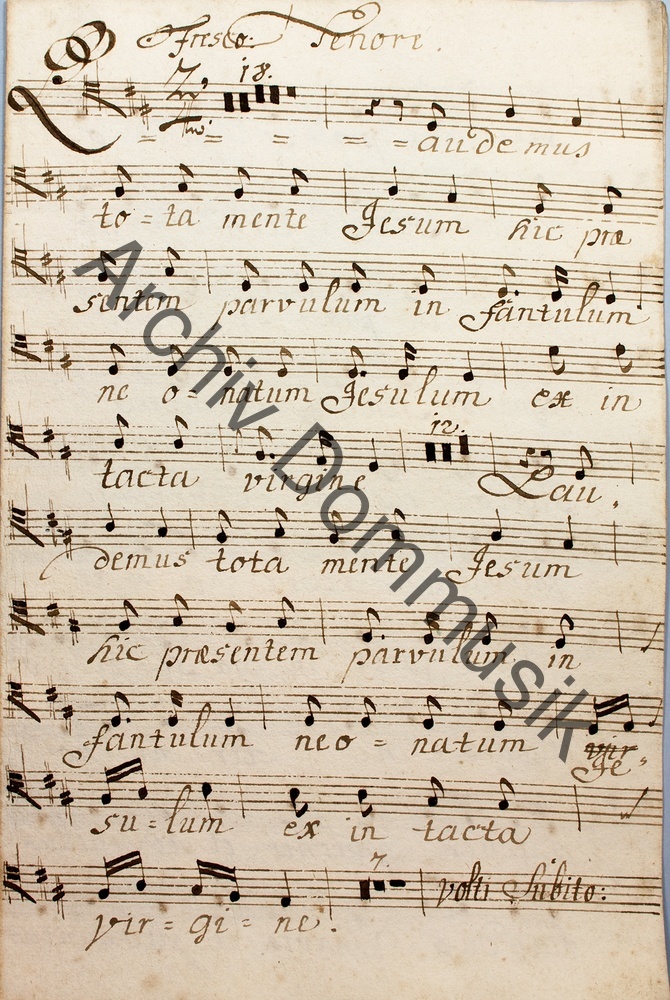 Fresco: Tenore.
18.
audemus
to = ta mente Jesum hic præ
sentem parvulum in fantulum
ne o = natum Jesulum ex in
tacta virgine Lau
12.
demus tota mente Jesum
hic præsentem parvulum in
fantulum neo = natum
Je =
su = lum ex in tacta
7.
volti Subito:
vir = gi = ne.
Archiv Dommusik